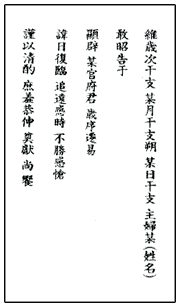 維歲次干支 某月干支朔 某日干支 主婦某(姓名)
敢昭告于
顯辟 某官府君 歲序遷易
諱日復臨 追遠感時 不勝感愴
謹以清酌 庶羞恭伸 奠獻 尙饗